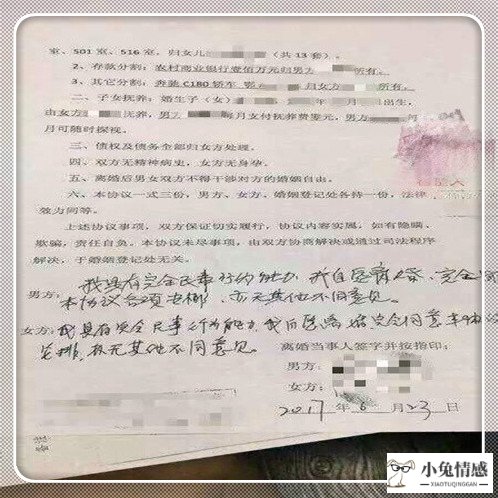 室、501 室、516 室，归女儿（共 13 套）。
2、存款分割：农村商业银行壹佰万元归男方所有。
3、其它分割：奔驰 C180 轿车 鄂归女方所有。
二、子女抚养：婚生子（女）年月出生，
由女方抚养，男方每月支付抚养费壹元，男方
月可随时探视。
三、债权及债务全部归女方处理。
四、双方无精神病史，女方无身孕。
五、离婚后男女双方不得干涉对方的婚姻自由。
六、本协议一式三份，男方、女方、婚姻登记处各持一份，法律
效力同等。
上述协议事项，双方保证切实履行，协议内容实属，如有隐瞒、
欺骗，责任自负。本协议未尽事项，由双方协商解决或通过司法程序
解决，于婚姻登记处无关。
男方：我具有完全民事行为能力，我自愿离婚，完全同
本协议各项安排，亦无其他不同意见。
女方：我具有完全民事行为能力，我自愿离婚完全同意本协议
安排，亦无其他不同意见。
离婚当事人签字并按指印：
男方：
女方：
2017 年 6 月 23 日
小兔情感
XIAOTUQINGGAN